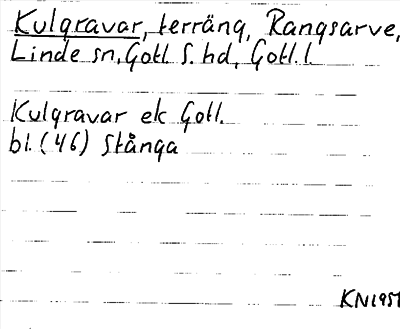 Kulgravar, terräng, Rangsarve,
Linde sn, Gotl S. hd, Gotl. l.
Kulgravar ek Gotl.
bl. (46) Stånga
KN1951